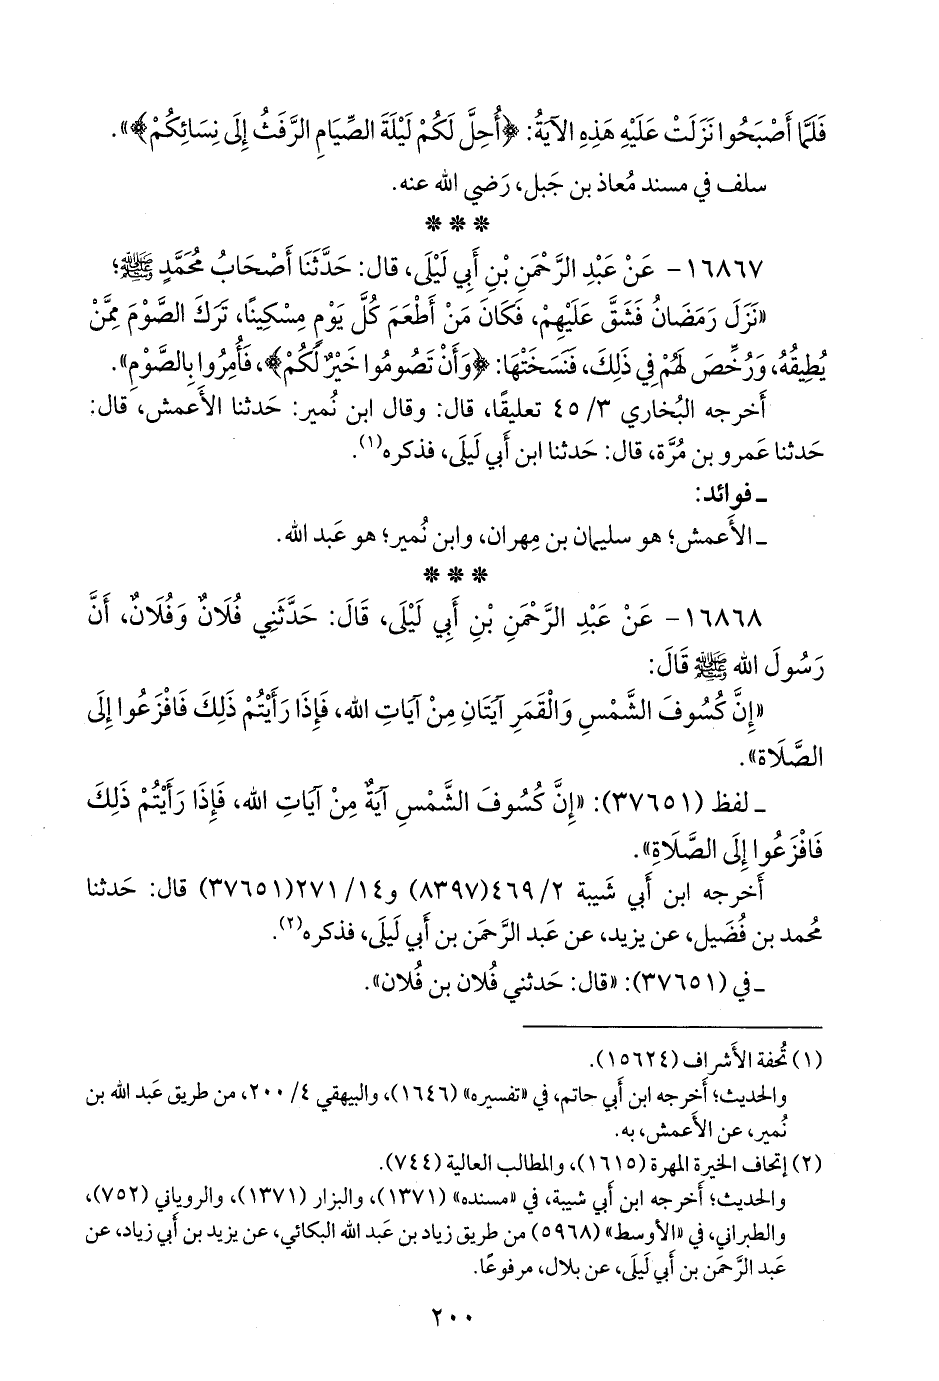 فَلَمَّا أَصْبَحُوا نَزَلَتْ عَلَيْهِ هَذِهِ الآيَةُ: ﴿أُحِلَّ لَكُمْ لَيْلَةَ الصِّيَامِ الرَّفَثُ إِلَى نِسَائِكُمْ﴾».
سلف في مسند مُعاذ بن جَبل، رَضي الله عنه.
* * *
١٦٨٦٧- عَنْ عَبْدِ الرَّحْمَنِ بْنِ أَبِي لَيْلَى، قال: حَدَّثَنَا أَصْحَابُ مُحَمَّدٍ ﷺ؛
«نَزَلَ رَمَضَانُ فَشَقَّ عَلَيْهِمْ، فَكَانَ مَنْ أَطْعَمَ كُلَّ يَوْمٍ مِسْكِينًا، تَرَكَ الصَّوْمَ مِمَّنْ
يُطِيقُهُ، وَرُخِّصَ لَهُمْ فِي ذَلِكَ، فَنَسَخَتْهَا: ﴿وَأَنْ تَصُومُوا خَيْرٌ لَكُمْ﴾، فَأُمِرُوا بِالصَّوْمِ».
أَخرجه البُخاري ٣/ ٤٥ تعليقًا، قال: وقال ابن نُمير: حَدثنا الأَعمش، قال:
حَدثنا عَمرو بن مُرَّة، قال: حَدثنا ابن أَبي لَيلَى، فذكره(١).
ـ فوائد:
ـ الأَعمش؛ هو سليمان بن مِهران، وابن نُمير؛ هو عَبد الله.
* * *
١٦٨٦٨- عَنْ عَبْدِ الرَّحْمَنِ بْنِ أَبِي لَيْلَى، قَالَ: حَدَّثَنِي فُلَانٌ وَفُلَانٌ، أَنَّ
رَسُولَ الله ﷺ قَالَ:
«إِنَّ كُسُوفَ الشَّمْسِ وَالْقَمَرِ آيَتَانِ مِنْ آيَاتِ الله، فَإِذَا رَأَيْتُمْ ذَلِكَ فَافْزَعُوا إِلَى
الصَّلَاة».
ـ لفظ (٣٧٦٥١): «إِنَّ كُسُوفَ الشَّمْسِ آيَةٌ مِنْ آيَاتِ الله، فَإِذَا رَأَيْتُمْ ذَلِكَ
فَافْزَعُوا إِلَى الصَّلَاةِ».
أَخرجه ابن أَبي شَيبة ٢/ ٤٦٩(٨٣٩٧) و١٤/ ٢٧١(٣٧٦٥١) قال: حَدثنا
مُحمد بن فُضَيل، عن يزيد، عن عَبد الرَّحمَن بن أَبي لَيلَى، فذكره(٢).
ـ في (٣٧٦٥١): «قال: حَدثني فُلان بن فُلان».
(١) تُحفة الأَشراف (١٥٦٢٤).
والحديث؛ أَخرجه ابن أَبي حاتم، في «تفسيره» (١٦٤٦)، والبيهقي ٤/ ٢٠٠، من طريق عَبد الله بن
نُمير، عن الأَعمش، به.
(٢) إتحاف الخيرة المهرة (١٦١٥)، والمطالب العالية (٧٤٤).
والحديث؛ أَخرجه ابن أَبي شيبة، في «مسنده» (١٣٧١)، والبزار (١٣٧١)، والروياني (٧٥٢)،
والطبراني، في «الأَوسط» (٥٩٦٨) من طريق زياد بن عَبد الله البكائي، عن يزيد بن أَبي زياد، عن
عَبد الرَّحمَن بن أَبي لَيلَى، عن بلال، مرفوعًا.
٢٠٠